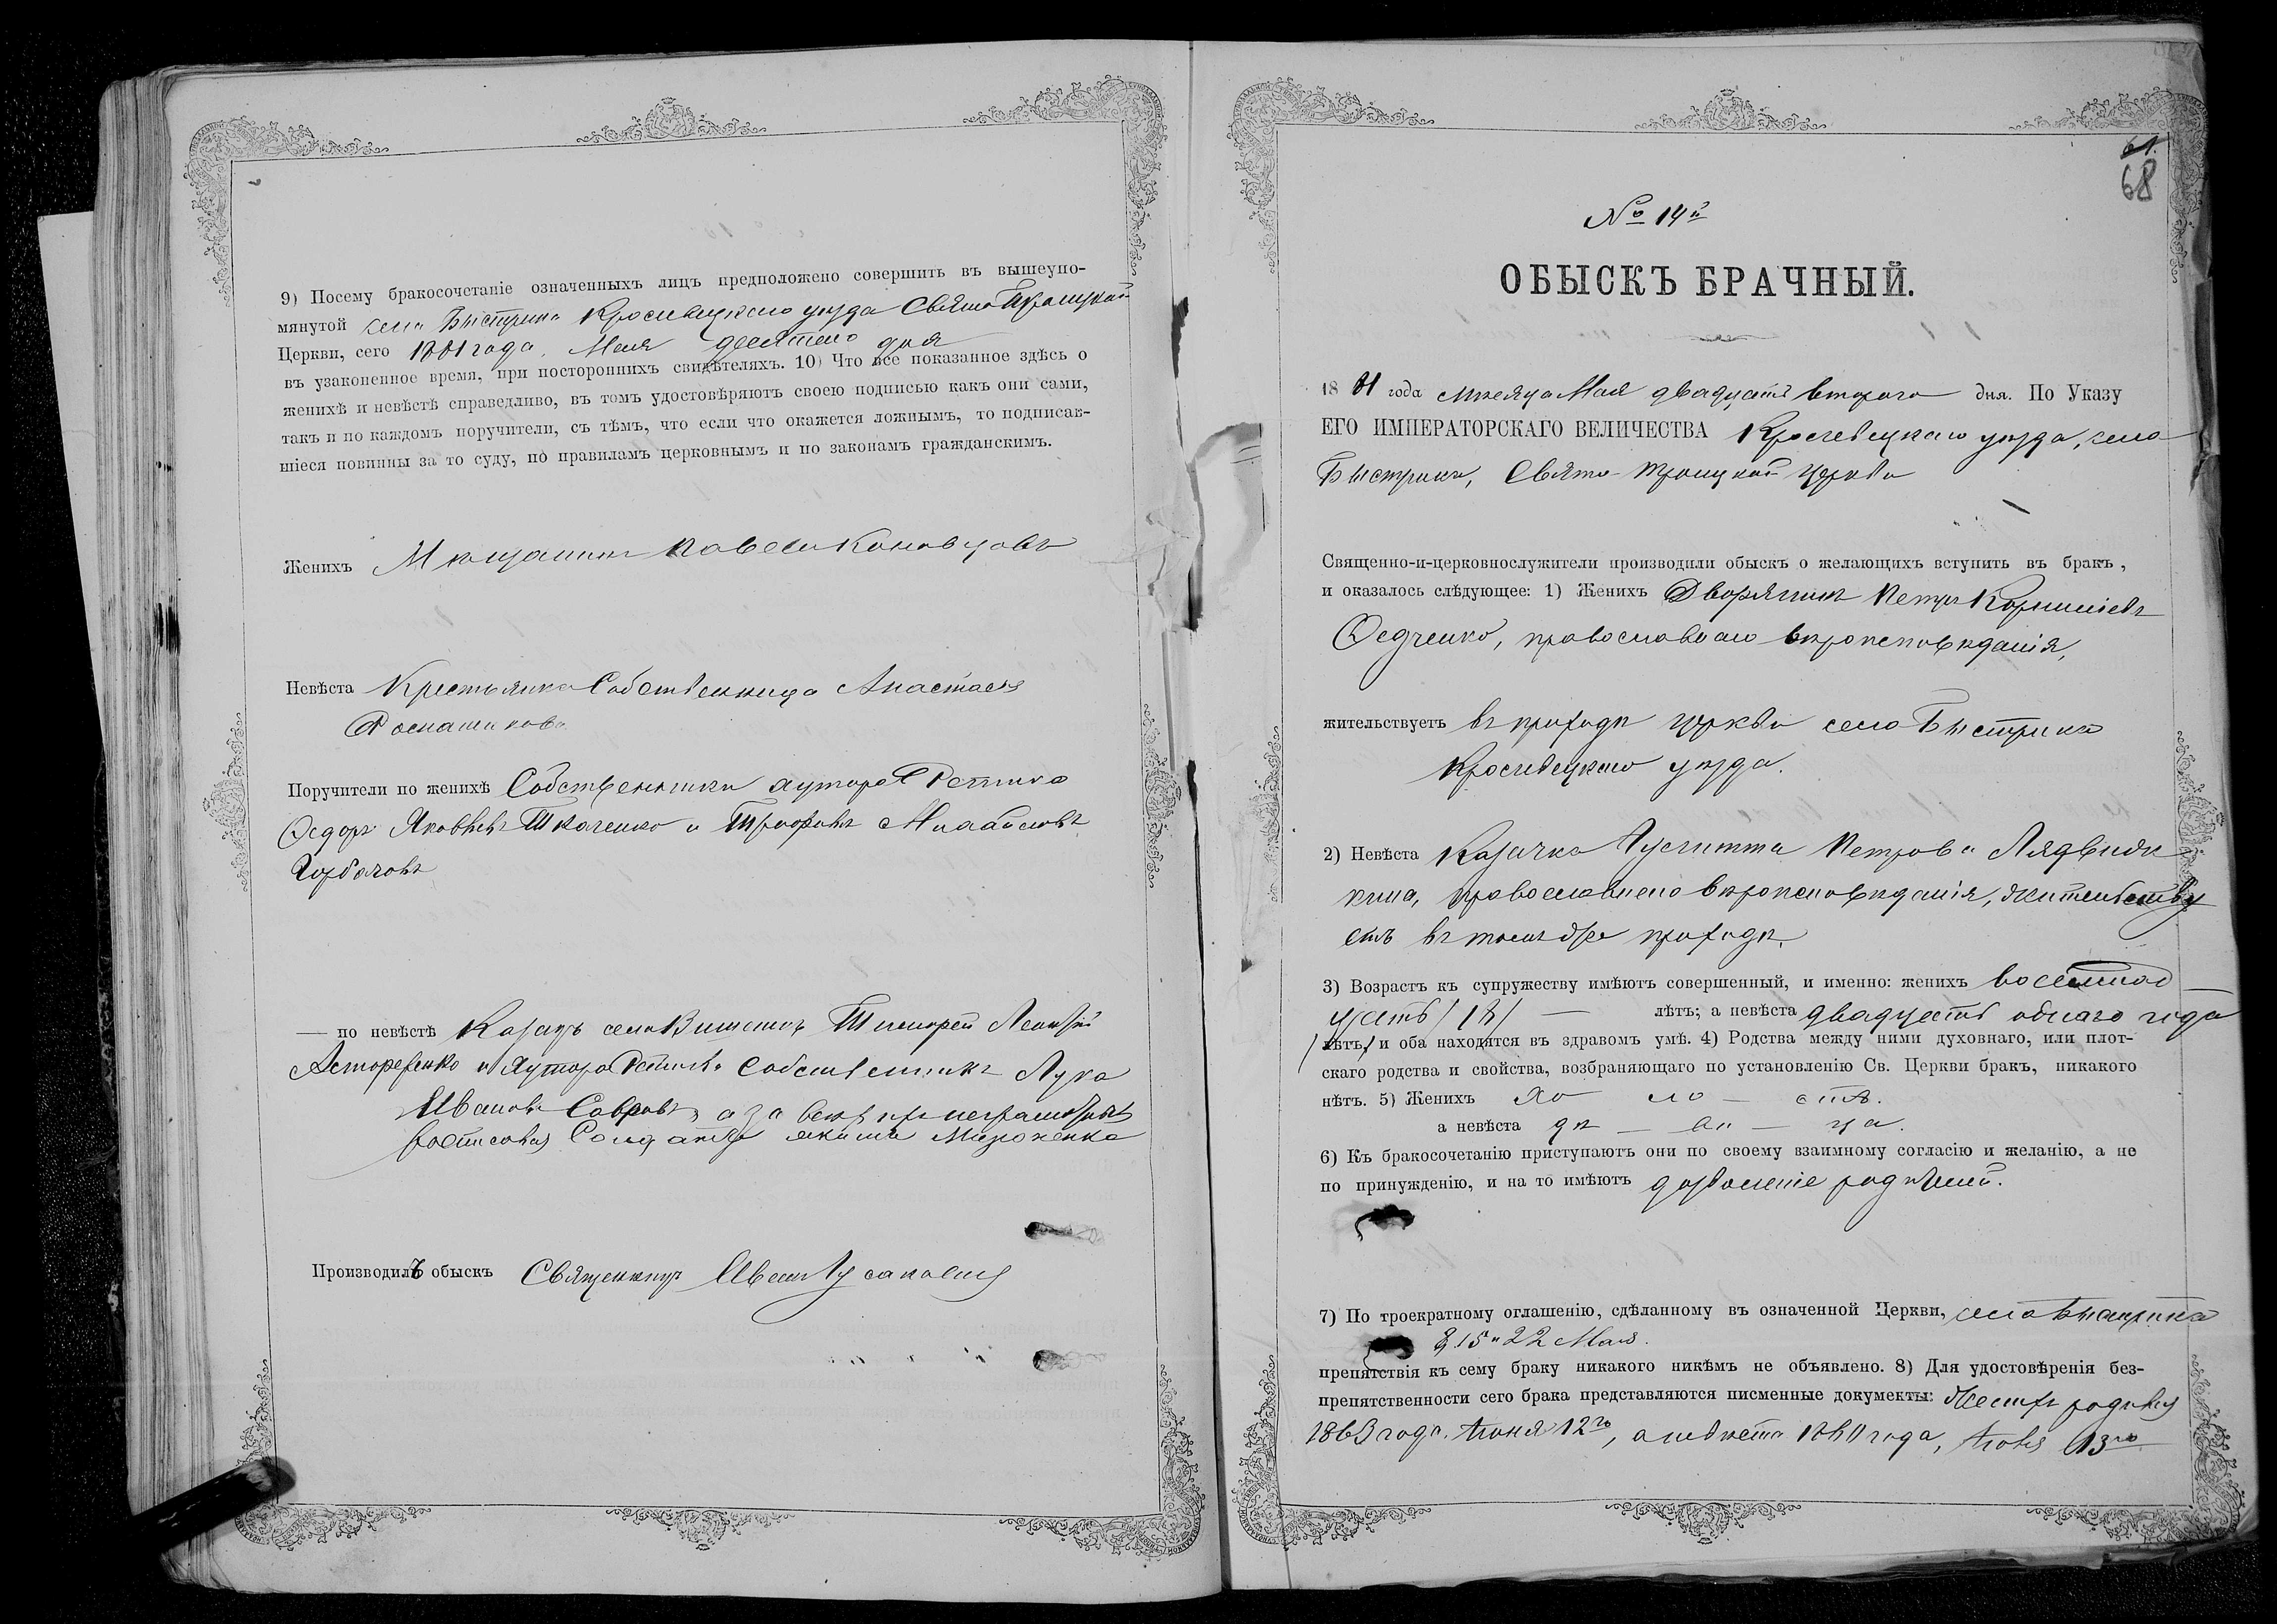 9) Посему бракосочетаніе означенныхъ лицъ предположено совершить въ вышеупо-
мянутой села Быстрика Кролевецкаго уѣзда Свято Троицкой
Церкви, сего 1881 года. Мая десятаго дня
въ узаконенное время, при постороннихъ свидѣтеляхъ. 10) Что все показанное здѣсь о
женихѣ и невѣстѣ справедливо, въ томъ удостовѣряютъ своею подписью какъ они сами,
такъ и по каждомъ поручители, съ тѣмъ, что если что окажется ложнымъ, то подписав-
шіеся повинны за то суду, по правиламъ церковнымъ и по законамъ гражданскимъ.
Женихъ Мѣщанинъ Павелъ
Невѣста Крестьянка Собственница Анастасія
Поручители по женихѣ Собственники хутора Ретика
Ѳедоръ Яковлевъ Ткаченко и Трофимъ Михайловъ
Горбачовъ
— по невѣстѣ Казакъ села Тимофей
и хутора собственникъ Лука
Ивановъ а за всѣхъ ихъ неграмотныхъ
росписался
Производилъ обыскъ Священникъ
61.
68
№ 14й
ОБЫСКЪ БРАЧНЫЙ.
1881 года мѣсяца Мая двадцать втораго дня. По Указу
ЕГО ИМПЕРАТОРСКАГО ВЕЛИЧЕСТВА Кролевецкаго уѣзда, села
Быстрика, Свято-Троицкой церкви
Священно-и-церковнослужители производили обыскъ о желающихъ вступить въ бракъ,
и оказалось слѣдующее: 1) Женихъ Дворянинъ Петръ Корниліевъ
Ѳедченко, православнаго вѣроисповѣданія,
жительствуетъ въ приходѣ церкви села Быстрика
Кролевецкаго уѣзда.
2) Невѣста Казачка Петрова
православнаго вѣроисповѣданія, жительству
етъ въ томъ же приходѣ.
3) Возрастъ къ супружеству имѣютъ совершенный, и именно: женихъ восемнад
цать /18/ — лѣтъ; а невѣста двадцать одного года
/лѣтъ,/ и оба находятся въ здравомъ умѣ. 4) Родства между ними духовнаго, или плот-
скаго родства и свойства, возбраняющаго по установленію Св. Церкви бракъ, никакого
нѣтъ. 5) Женихъ хо — ло — стъ.
а невѣста дѣ — ви — ца.
6) Къ бракосочетанію приступаютъ они по своему взаимному согласію и желанію, а не
по принужденію, и на то имѣютъ дозволеніе родителей.
7) По троекратному оглашенію, сдѣланному въ означенной Церкви, села Быстрика
15 и 22 Мая.
препятствія къ сему браку никакого никѣмъ не объявлено. 8) Для удостовѣренія без-
препятственности сего брака представляются писменные документы: Женихъ родился
1863 года. Іюня 12го, а невѣста 1860 года, 13го